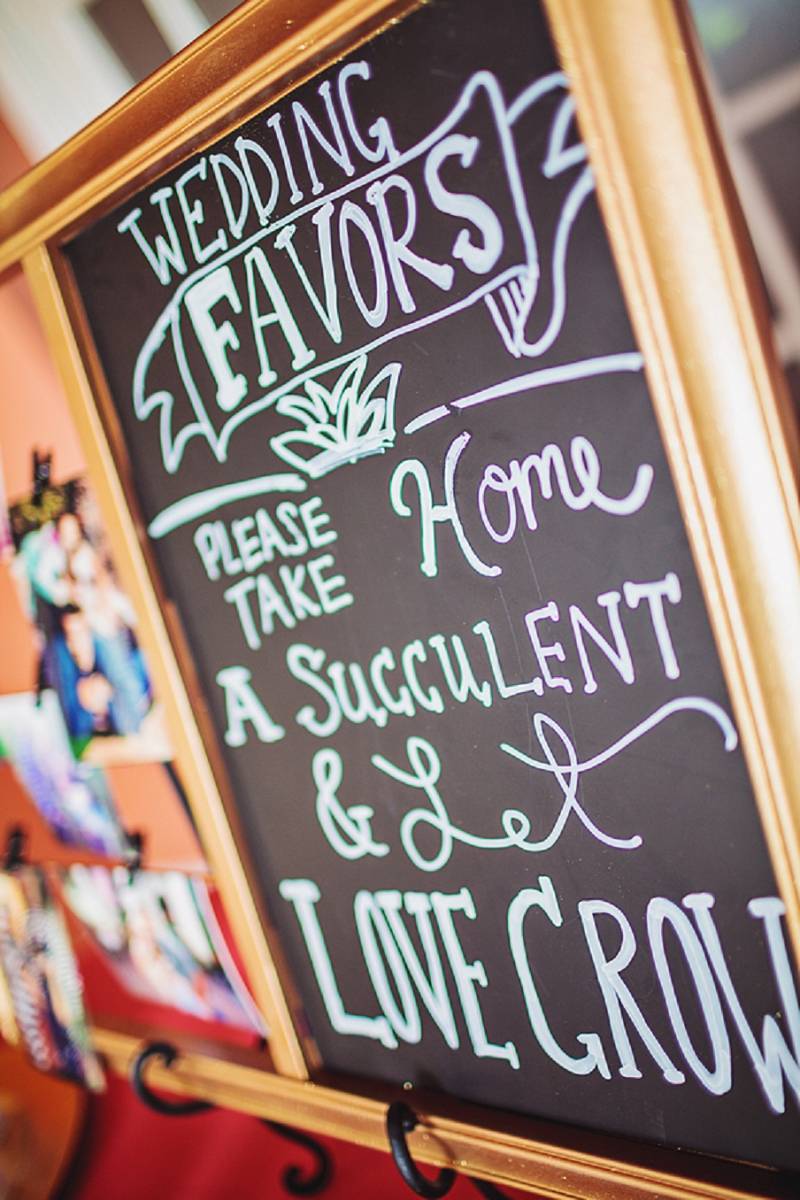 WEDDING
FAVORS
PLEASE
TAKE Home
A SUCCULENT
& Let
LOVE GROW